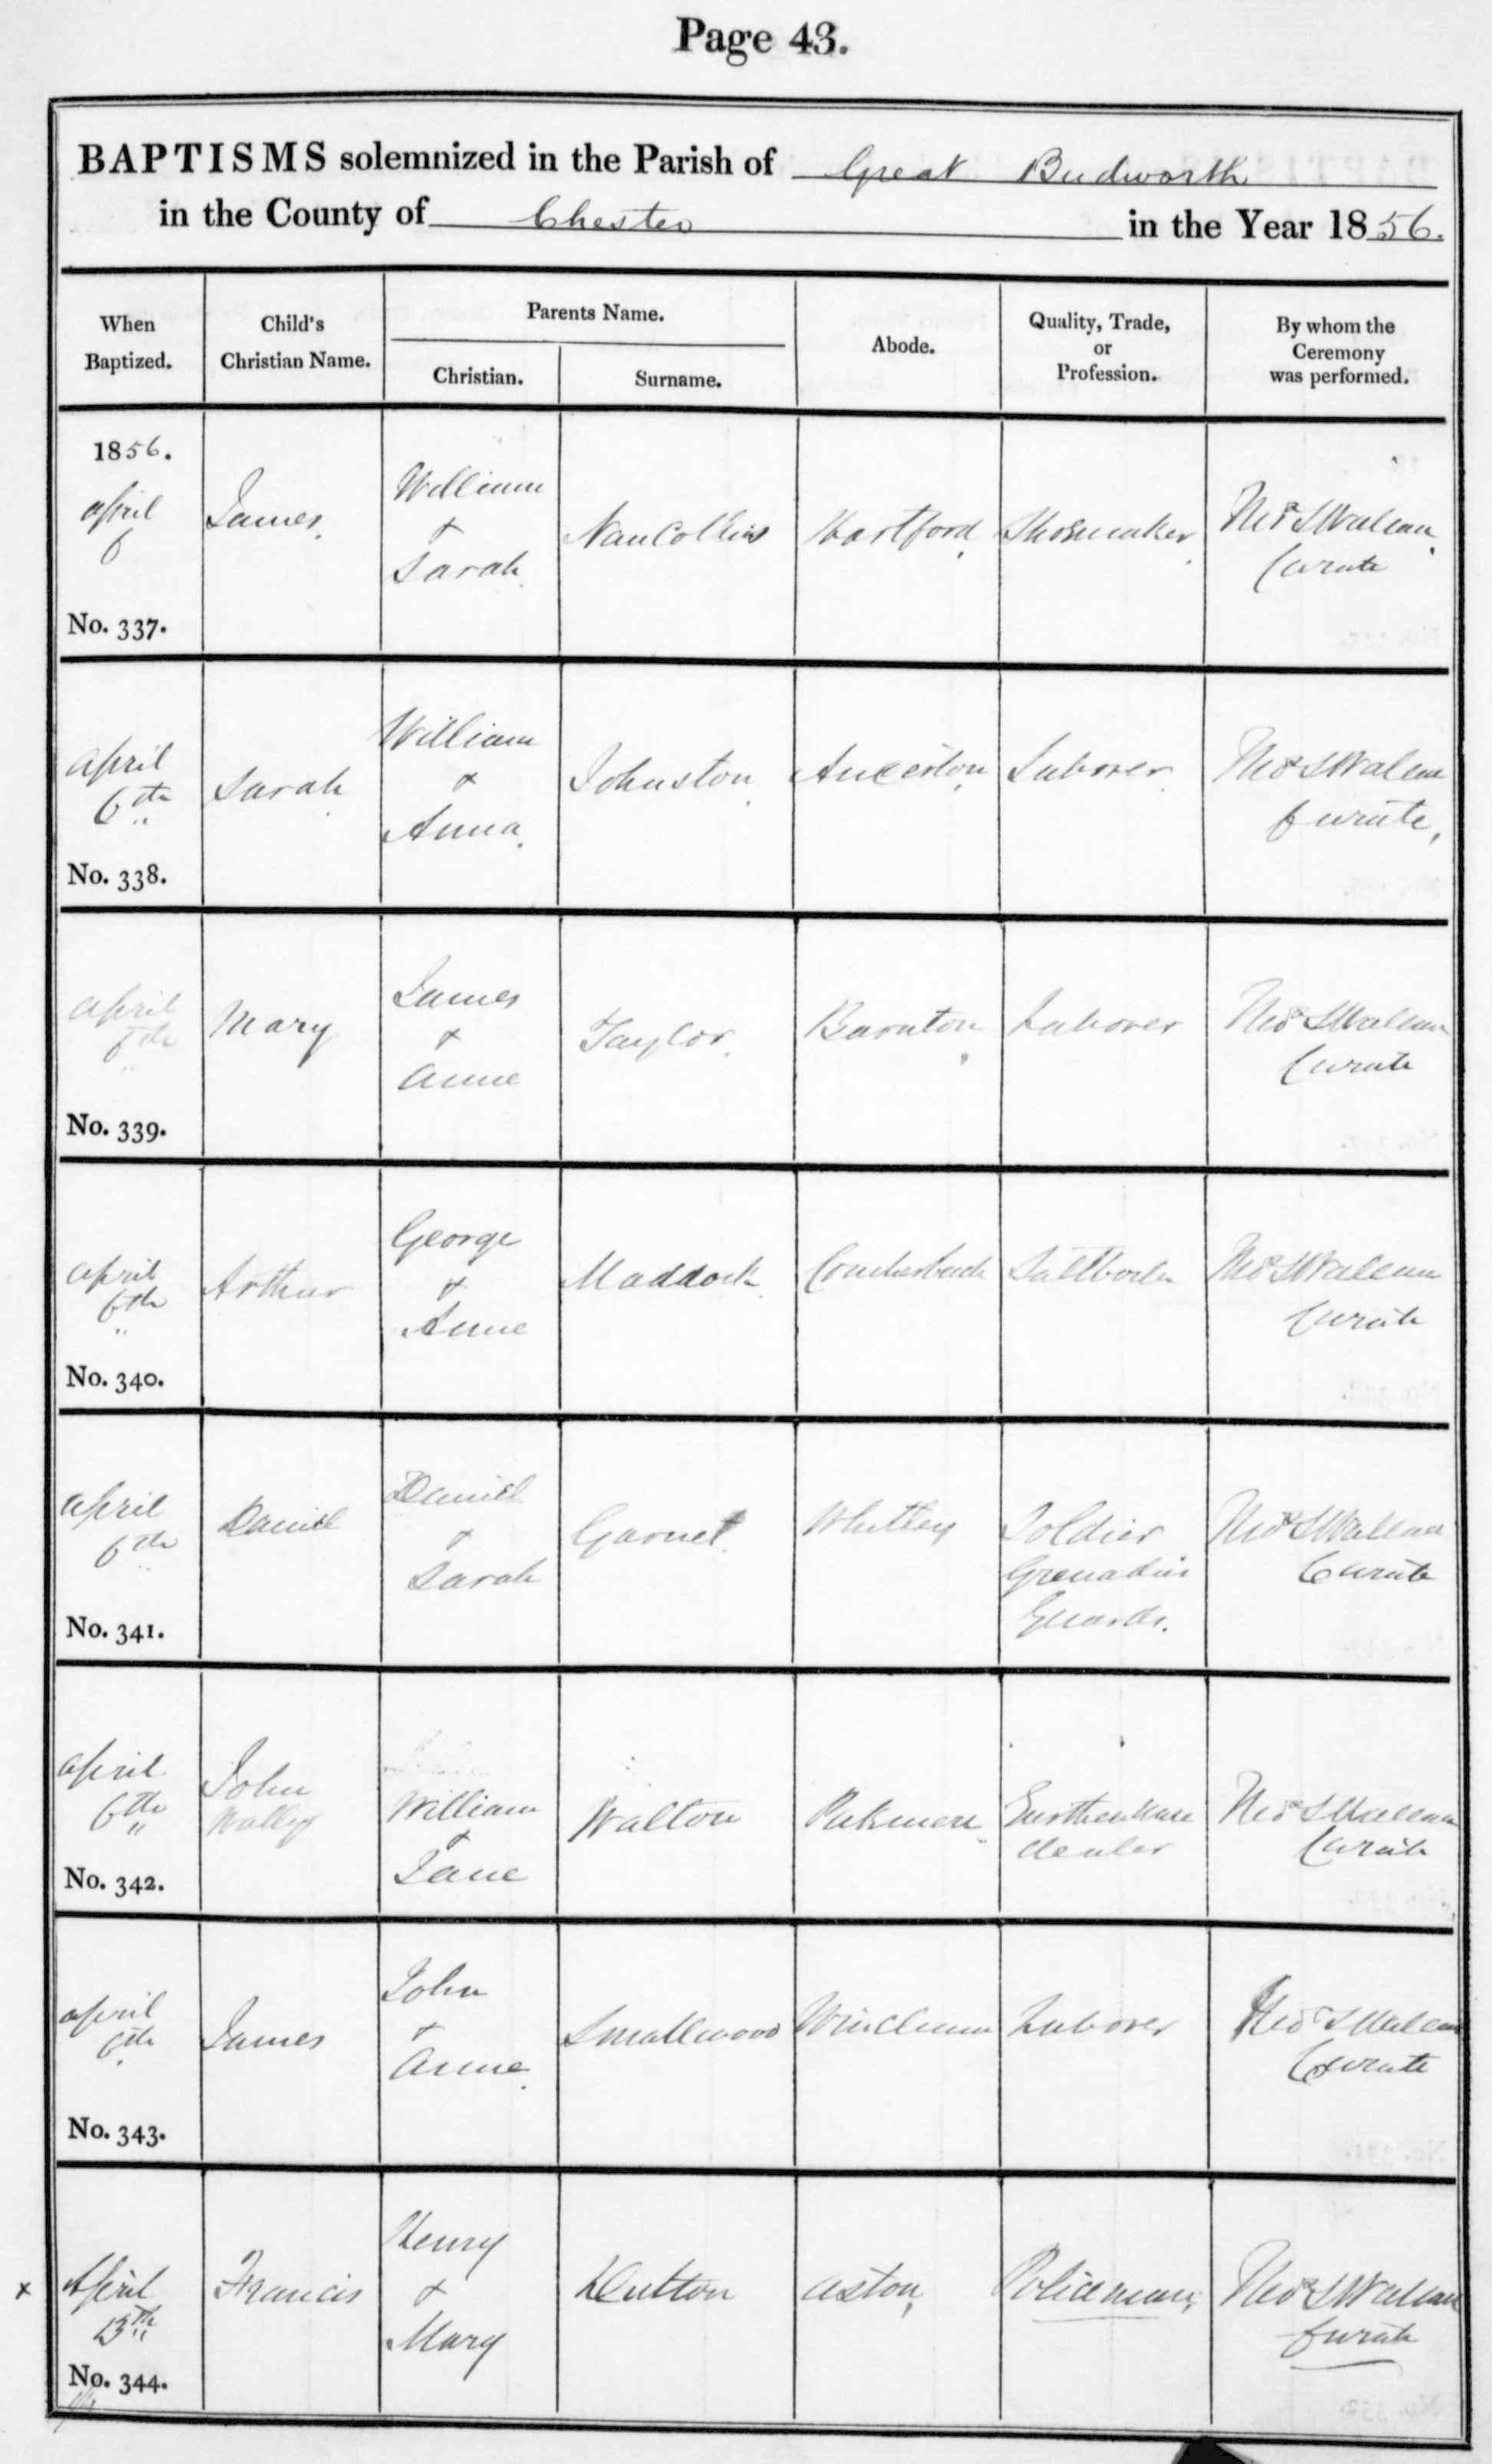 Page 43.
BAPTISMS solemnized in the Parish of Great Budworth
in the County of Chester in the Year 1856.
When Baptized.
Child's Christian Name.
Parents Name.
Christian.
Surname.
Abode.
Quality, Trade, or Profession.
By whom the Ceremony was performed.
1856.
April
6
No. 337.
James.
William
+
Sarah
NanCollins
Hartford
Shoemaker
Curate
April
6th
No. 338.
Sarah
William
+
Anna
Johnston
Laborer
Curate
April
6th
No. 339.
Mary
James
+
Anne
Taylor
Barnton
Laborer
Curate
April
6th
No. 340.
Arthur
George
+
Anne
Maddock
Comberbach
Curate
April
6th
No. 341.
Daniel
Daniel
+
Sarah
Garnet
Whitley
Soldier
Grenadier
Guards.
Curate
April
6th
No. 342.
John
Walley
William
+
Jane
Walton
Pickmere
Earthenware
dealer
Curate
April
6th
No. 343.
James
John
+
Anne
Smallwood
Wincham
Laborer
Curate
x
April
13th
No. 344.
Francis
Henry
+
Mary
Dutton
Aston
Policeman
Curate